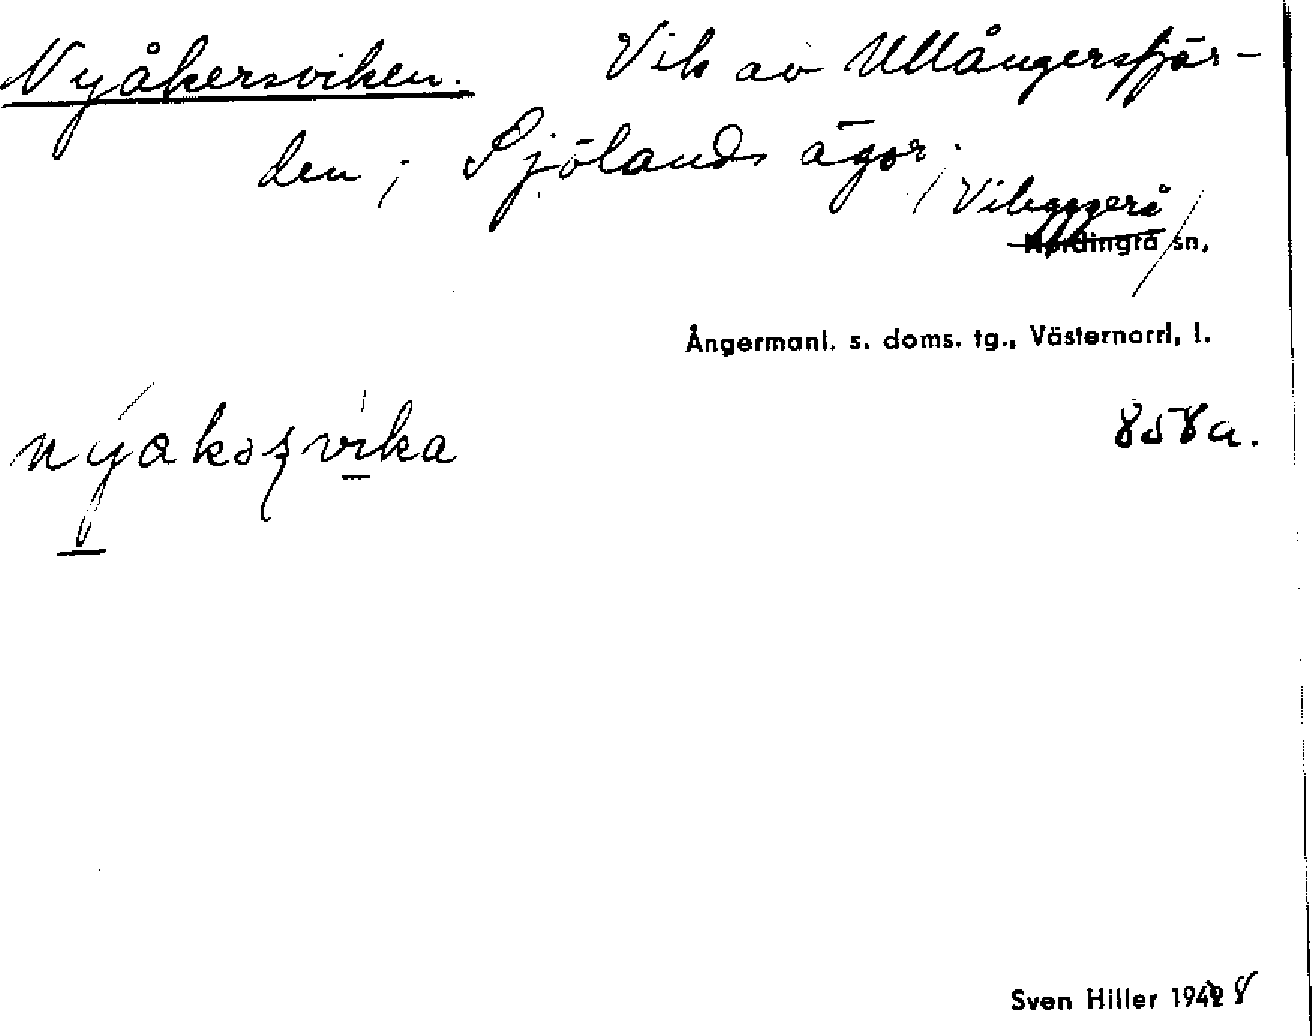 Nyåkersviken. Vik av Ullångersfjär-
den; Sjölands ägor.
/Vibyggerå/
Nordingrå sn,
Ångermanl. s. doms. tg., Västernorrl, l.
858a.
Sven Hiller 1948